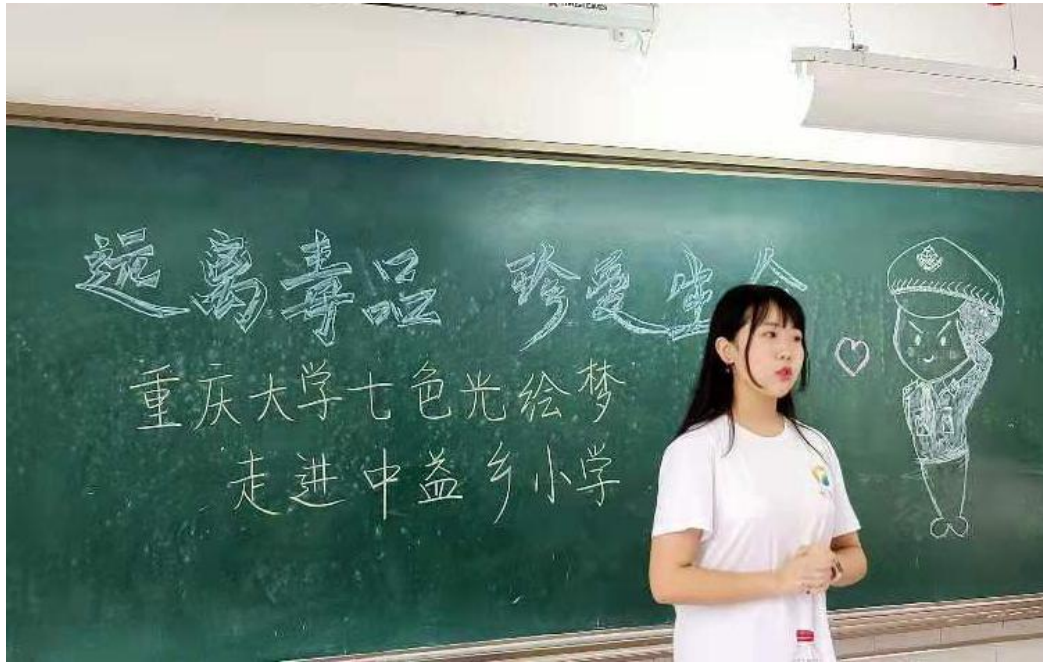 远离毒品 珍爱生命
重庆大学七色光绘梦
走进中益乡小学